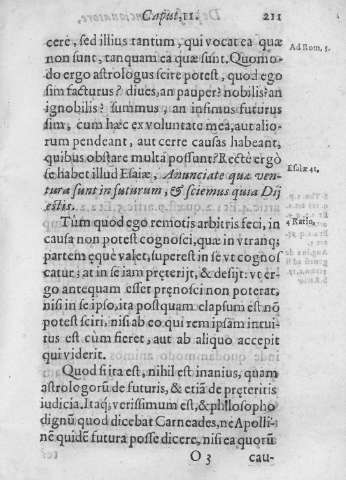 Caput. 11. 211
cere, sed illius tantum, qui vocat ea quæ
non sunt, tanquam ea quæ sunt. Quomo-
do ergo astrologus scire potest, quod ego
sim facturus? diues, an pauper? nobilis? an
ignobilis? summus, an infimus futurus
sim, cum hæc ex voluntate mea, aut alio-
rum pendeant, aut certe causas habeant,
quibus obstare multa possunt? Rectè ergò
se habet illud Esaiæ, Anunciate quæ ven-
tura sunt in futurum, & sciemus quia Dij
estis.
Tùm quod ego remotis arbitris feci, in
causa non potest cognosci, quæ in vtranq;
partem ęque valet, superest in se vt cognos
catur; at in se iam pręterijt, & desijt: vt er-
go antequam esset pręnosci non poterat,
nisi in se ipso, ita postquam elapsum est nō
potest sciri, nisi ab eo qui rem ipsam intui-
tus est cum fieret, aut ab aliquo accepit
qui viderit.
Quod si ita est, nihil est inanius, quam
astrologorū de futuris, & etiā de pręteritis
iudicia. Itaq; verissimum est, & philosopho
dignū quod dicebat Carneades, ne Apolli-
nē quidē futura posse dicere, nisi ea quorū
O 3 cau-
Ad Rom. 5.
Esaiæ 41.
4 Ratio.